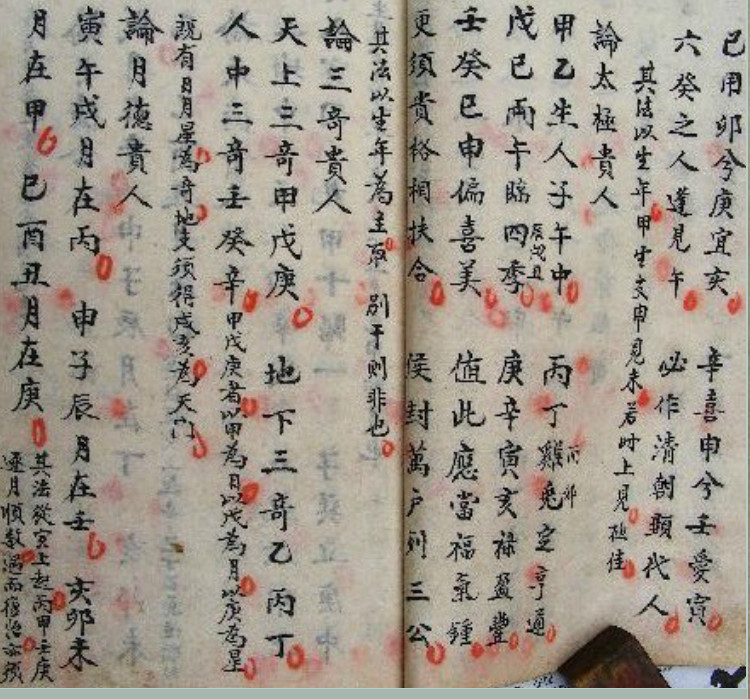 己用卯兮庚宜亥 辛喜申兮壬愛寅
六癸之人逢見午 必作清朝顯代人
其法以生年甲生支申見未若时上見極佳
論太極貴人
甲乙生人子午中 丙丁雞兔定亨通
酉卯
戊己兩午臨四季 庚辛寅亥祿盈豐
辰戌丑
壬癸巳申偏喜美 值此應當福氣鍾
更須貴格相扶合 侯封萬户列三公
其法以生年為主 別干則非也
論三奇貴人
天上三奇甲戊庚 地下三奇乙丙丁
人中三奇壬癸辛 甲戊庚者以甲為日以戊為月以庚為星
既有日月星為奇地支須得戌亥為天門
論月德貴人
寅午戌月在丙 申子辰月在壬 亥卯未
月在甲 巳酉丑月在庚 其法從寅上起丙甲壬庚
逐月順數過而復始亦須